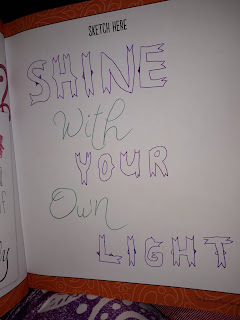 SKETCH HERE
SHINE
With
YOUR
Own
LIGHT